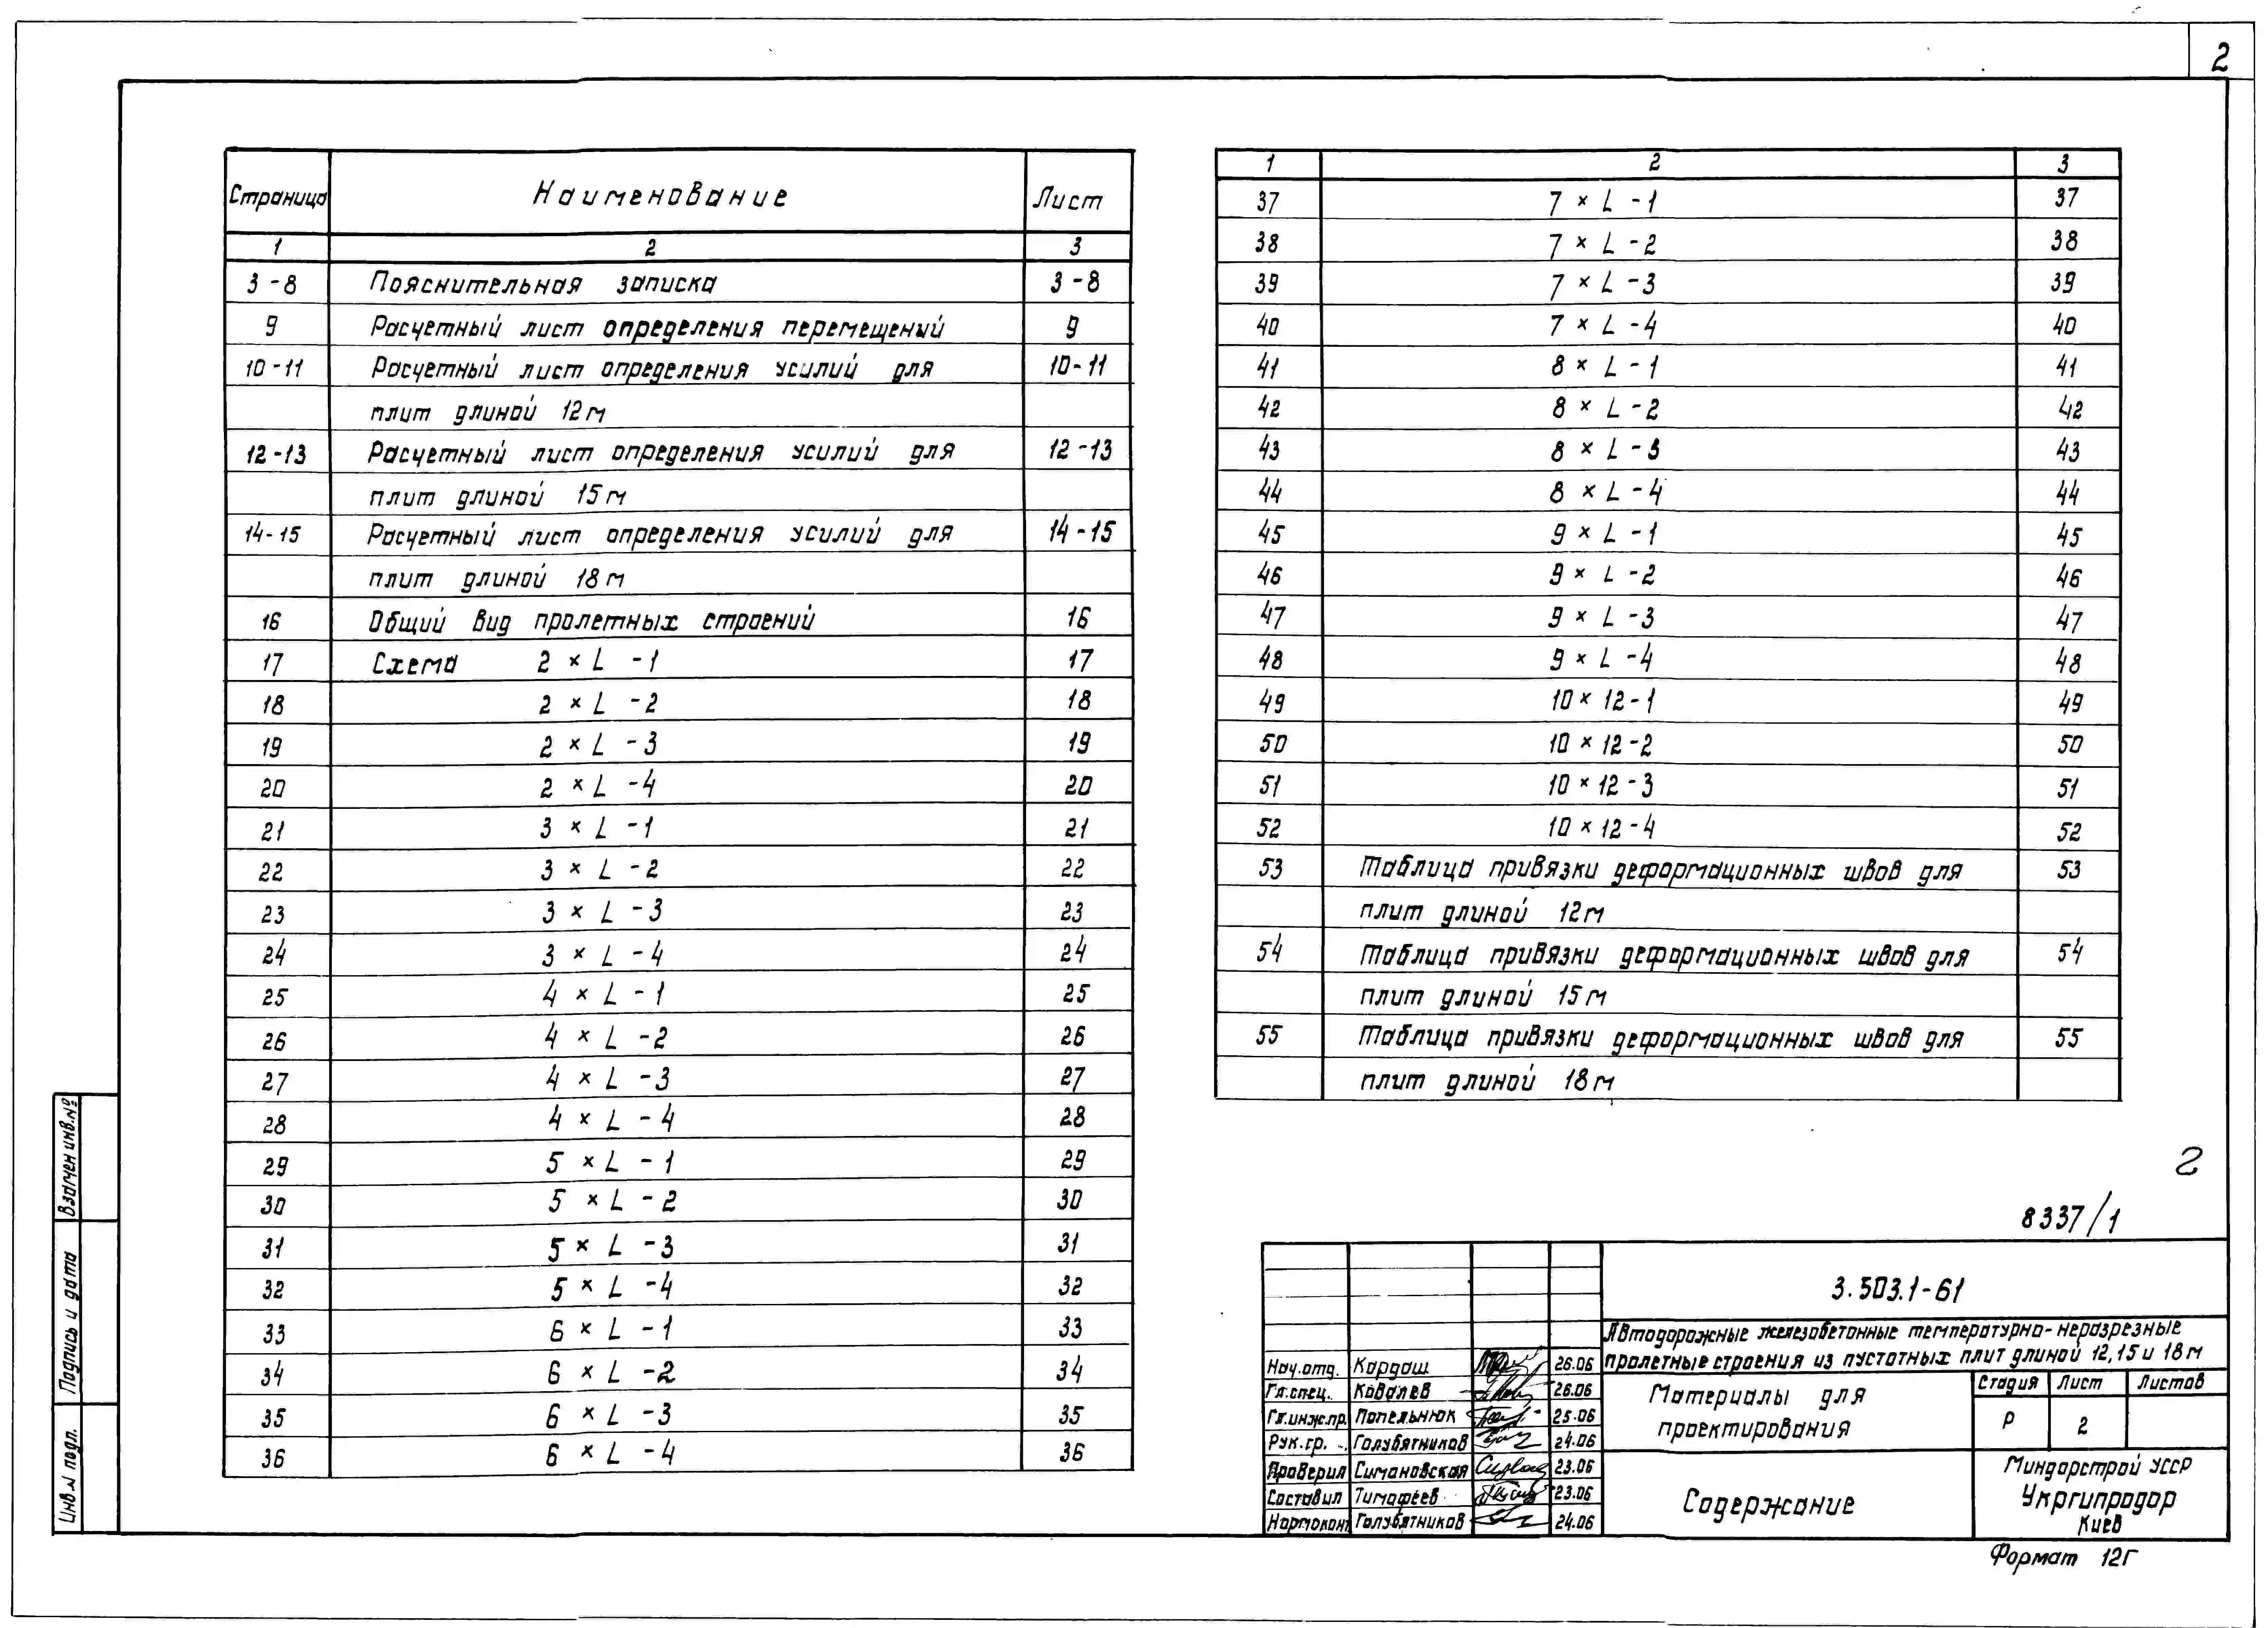 2
Страница Наименование Лист
1 2 3
3-8 Пояснительная записка 3-8
9 Расчетный лист определения перемещений 9
10-11 Расчетный лист определения усилий для 10-11
плит длиной 12м
12-13 Расчетный лист определения усилий для 12-13
плит длиной 15м
14-15 Расчетный лист определения усилий для 14-15
плит длиной 18м
16 Общий вид пролетных строений 16
17 Схема 2 × L -1 17
18 2 × L -2 18
19 2 × L -3 19
20 2 × L -4 20
21 3 × L -1 21
22 3 × L -2 22
23 3 × L -3 23
24 3 × L -4 24
25 4 × L -1 25
26 4 × L -2 26
27 4 × L -3 27
28 4 × L -4 28
29 5 × L -1 29
30 5 × L -2 30
31 5 × L -3 31
32 5 × L -4 32
33 6 × L -1 33
34 6 × L -2 34
35 6 × L -3 35
36 6 × L -4 36
1 2 3
37 7 × L -1 37
38 7 × L -2 38
39 7 × L -3 39
40 7 × L -4 40
41 8 × L -1 41
42 8 × L -2 42
43 8 × L -3 43
44 8 × L -4 44
45 9 × L -1 45
46 9 × L -2 46
47 9 × L -3 47
48 9 × L -4 48
49 10 × 12-1 49
50 10 × 12-2 50
51 10 × 12-3 51
52 10 × 12-4 52
53 Таблица привязки деформационных швов для 53
плит длиной 12м
54 Таблица привязки деформационных швов для 54
плит длиной 15м
55 Таблица привязки деформационных швов для 55
плит длиной 18м
2
8337/1
3.503.1-61
Автодорожные железобетонные температурно-неразрезные
пролетные строения из пустотных плит длиной 12,15 и 18м
Нач.отд. Кардаш 26.06
Гл.спец. Ковалев 26.06
Гл.инж.пр. Попельнюк 25.06
Рук.гр. Голубятников 24.06
Проверил Симановская 23.06
Составил Тимофеев 23.06
Нормоконт Голубятников 24.06
Материалы для
проектирования
Стадия Лист Листов
Р 2
Содержание
Миндорстрой УССР
Укргипродор
Киев
Формат 12Г
Взамен инв.№
Подпись и дата
Инв.№ подл.